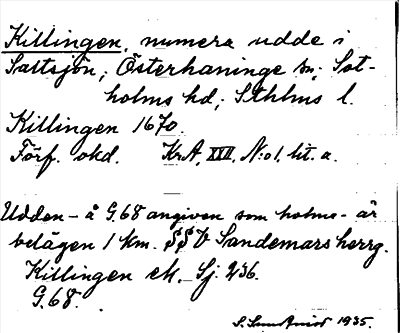 Killingen, numera udde i
Saltsjön, Österhaninge sn, Sot-
holms hd, Sthlms l.
Killingen 1670.
Förf. okd. KrA, XVII, N:o 1. lit. a.
Udden - å G.68 angiven som holme - är
belägen 1 km. SSV Sandemars herrg.
Killingen ek. Sj. 236.
G.68.
1935.